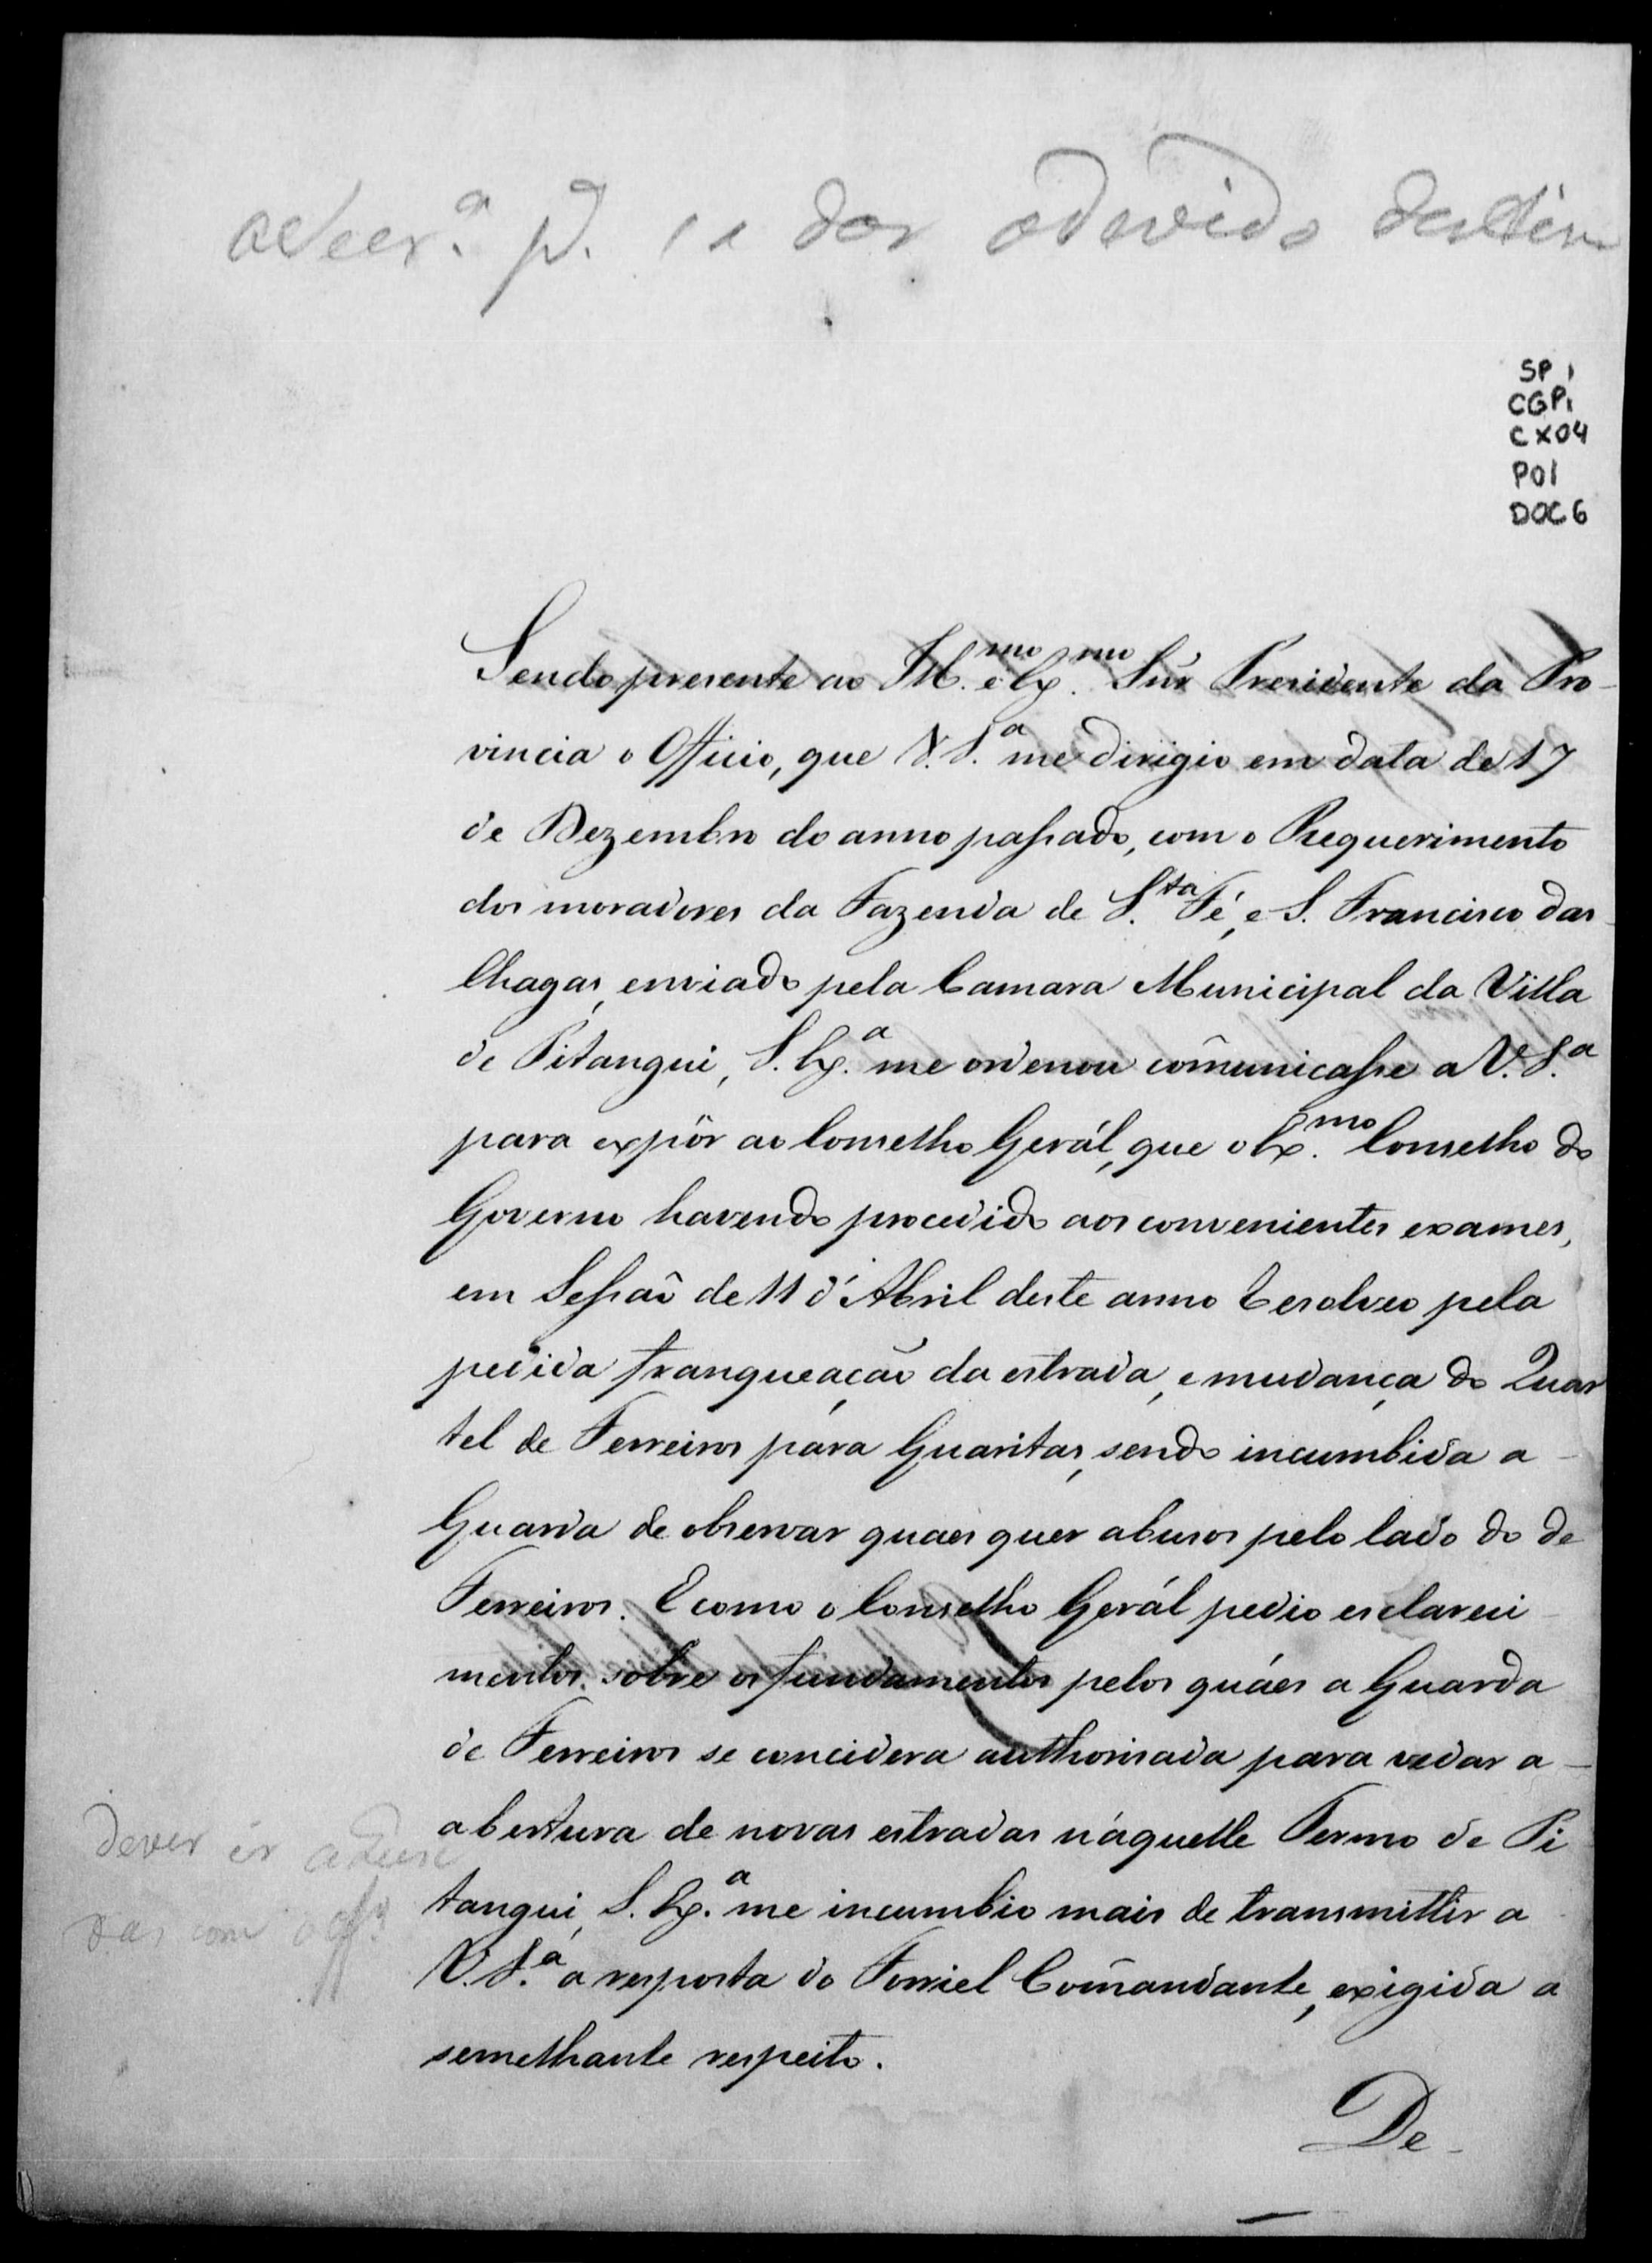 dar odevido
SP 1
CGP1
CX04
P01
DOC 6
Sendo presente ao Ill.mo e Ex.mo Sñr Prezidente da Pro-
vincia o Officio, que V. S.a me dirigio em data de 17
de Dezembro do anno passado, com o Requerimento
dos moradores da Fazenda de S.ta Fé, e S. Francisco das
Chagas, enviado pela Camara Municipal da Villa
de Pitangui, S. Ex.a me ordenou cõmunicasse a V. S.a
para expôr ao Conselho Gerál, que o Ex.mo Conselho do
Governo havendo procedido aos convenientes exames,
em Sessaõ de 11 d'Abril deste anno resolveo pela
pedida franqueaçaõ da estrada, e mudança do Quar
tel de Ferreiros para Guaritas, sendo incumbida a
Guarda de observar quaes quer abusos pelo lado do de
Ferreiros. E como o Conselho Gerál pedio esclareci
mentos sobre os fundamentos pelos quáes a Guarda
de Ferreiros se concidera authorisada para vedar a
abertura de novas estradas n'aquelle Termo de Pi
tangui, S. Ex.a me incumbio mais de transmittir a
V. S.a a resposta do Forriel Cõmandante, exigida a
semelhante respeito.
De
dever ir
das com o off.o